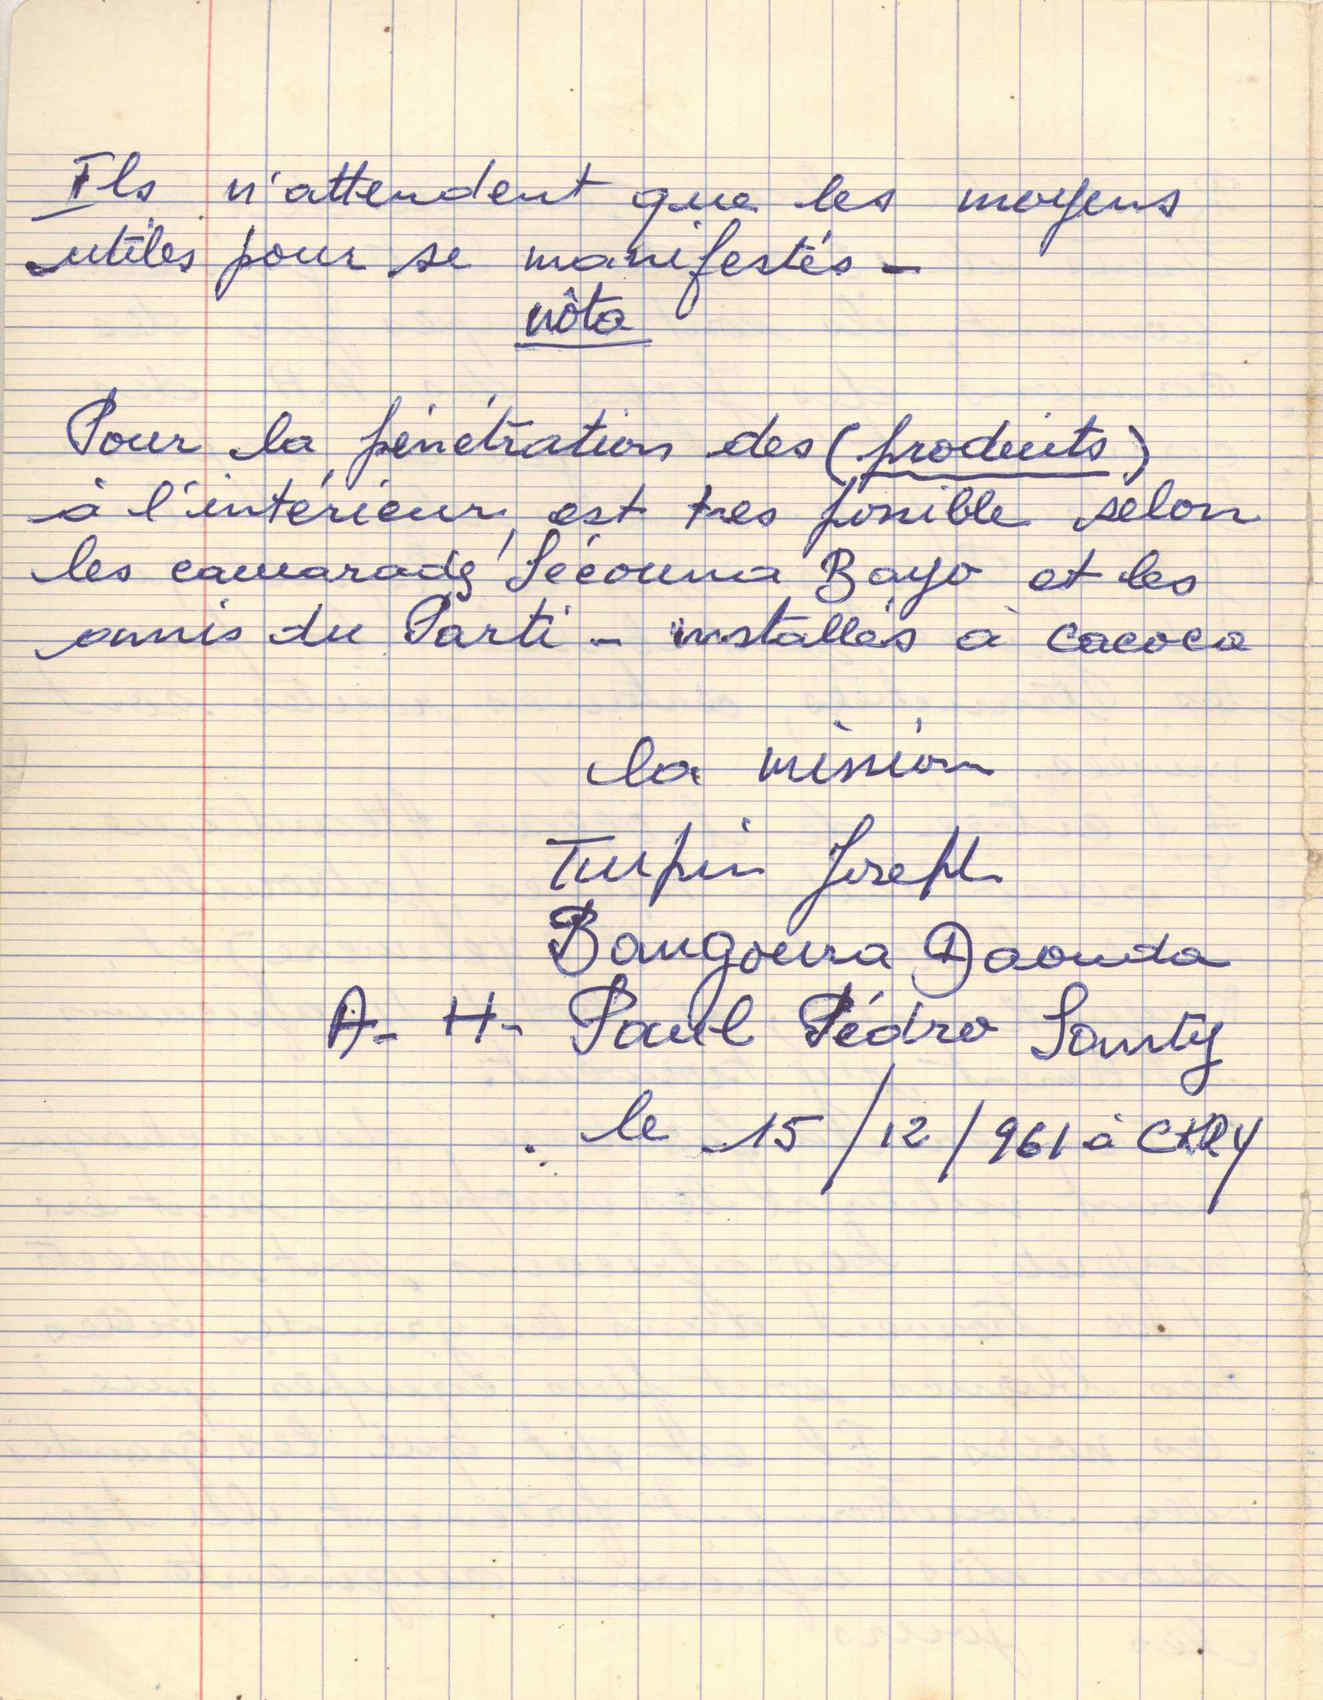 Ils n'attendent que les moyens
utiles pour se manifestés -
nôta
Pour la pénétration des (produits)
à l'intérieur, est tres possible selon
les camarades Sécouna Bayo et les
amis du Parti - installés à cacoca
la mission
Turpin Joseph
Bangoura Daouda
A- H- Paul Pédro Somty
le 15/12/961 à CKRY